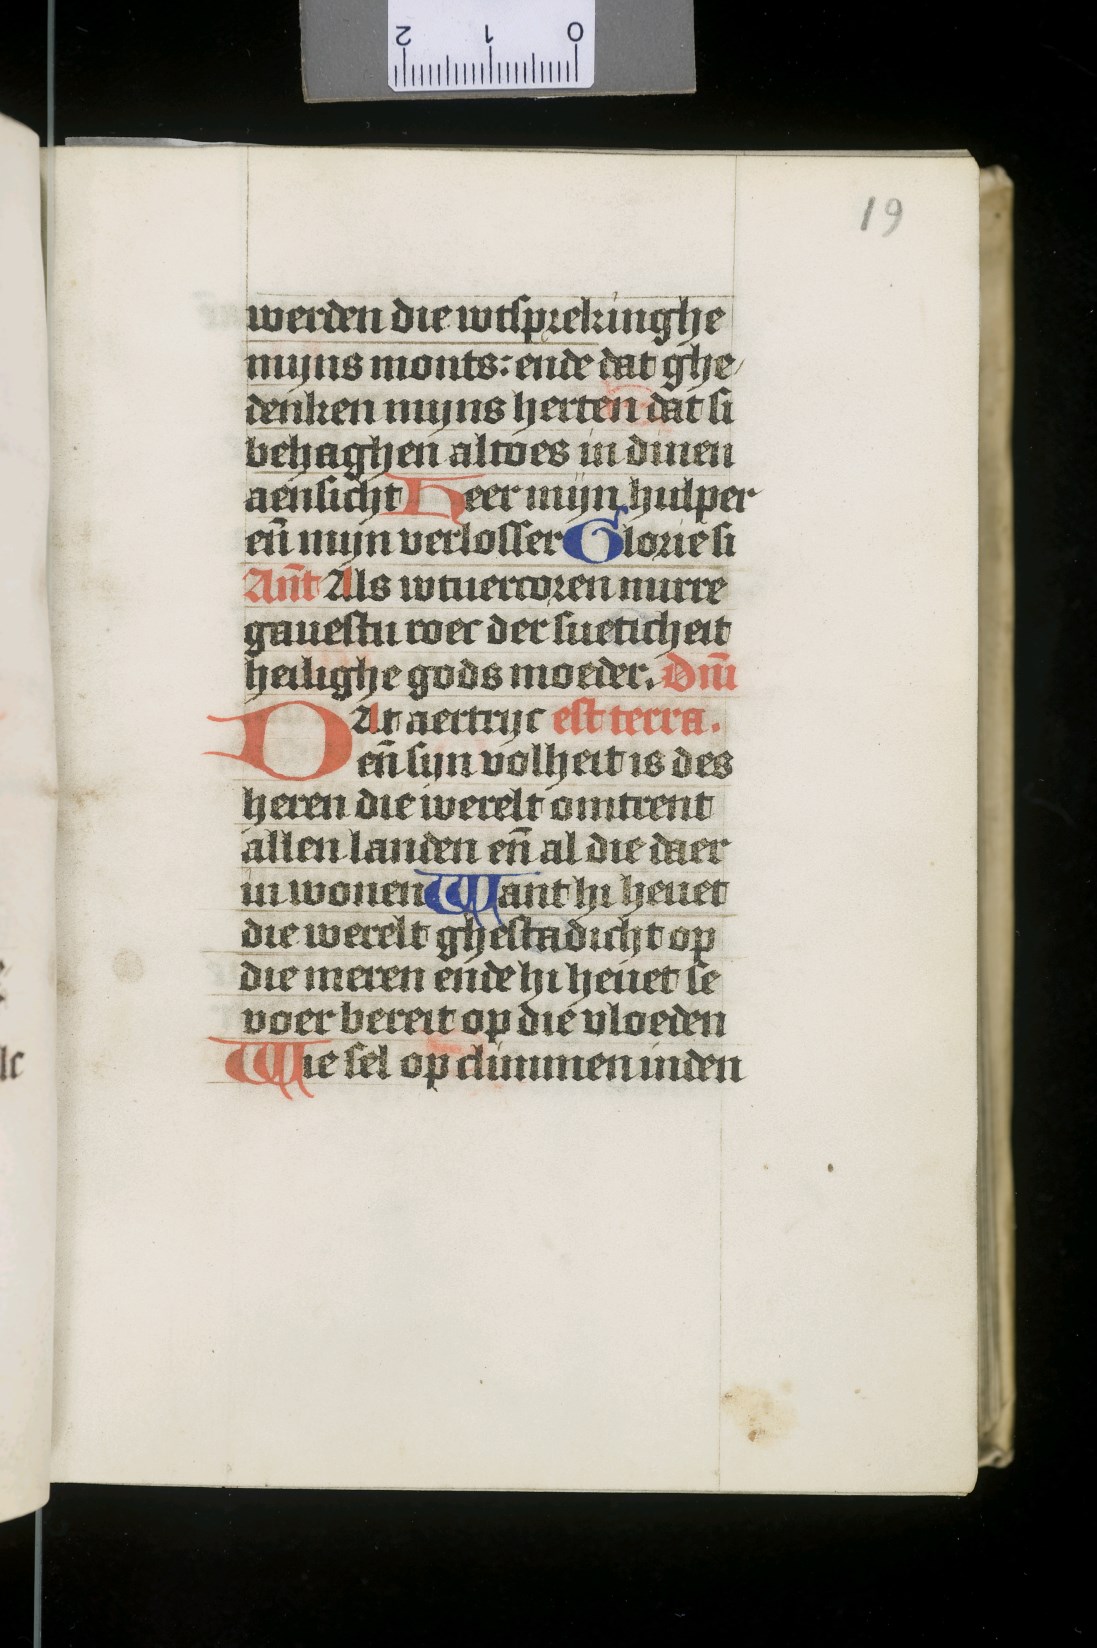 19
werden die wtsprekinghe
mijns monts: ende dat ghe/
denken mijns herten dat si
behaghen altoes in dinen
aensicht Heer mijn hulper
eñ mijn verlosser Glorie si
Ant̄ Als wtuercoren mirre
gauestu roec der sueticheit
heilighe gods moeder. Dn̄i
DAt aertrijc est terra.
eñ sijn volheit is des
heren die werelt omtrent
allen landen eñ al die daer
in wonen Want hi heuet
die werelt ghestadicht op
die meren ende hi heuet se
voer bereit op die vloeden
Wie sel op climmen inden
0 1 2